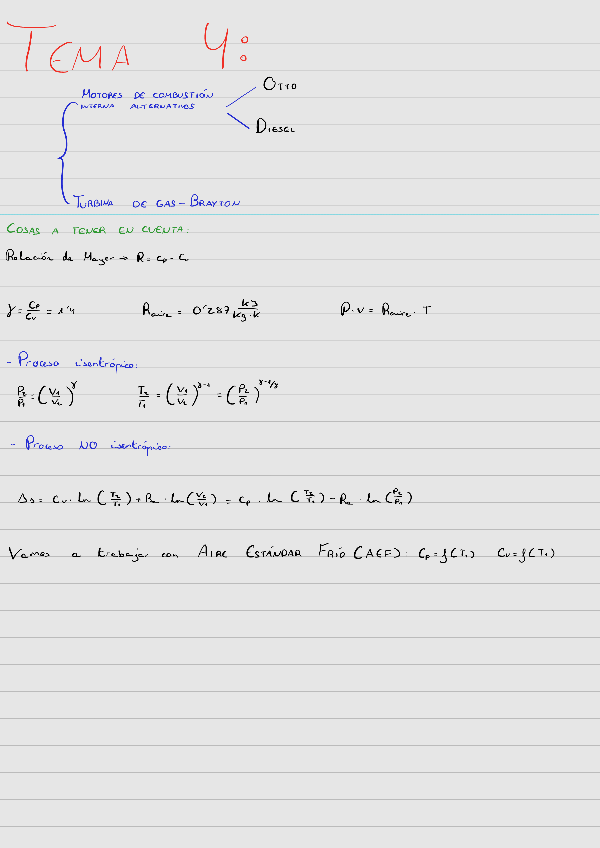 TEMA 4:
MOTORES DE COMBUSTIÓN
INTERNA ALTERNATIVOS
OTTO
DIESEL
TURBINA DE GAS-BRAYTON
COSAS A TENER EN CUENTA:
Relación de Mayer → R = cp - cv
γ = cp/cv = 1'4    Raire = 0'287 kJ/kg·K    P·v = Raire · T
- Proceso isentrópico:
P2/P1 = (V1/V2)^γ    T2/T1 = (V1/V2)^γ-1 = (P2/P1)^γ-1/γ
- Proceso NO isentrópico:
Δs = Cv · ln (T2/T1) + Ra · ln (V2/V1) = Cp · ln (T2/T1) - Ra · ln (P2/P1)
Vamos a trabajar con AIRE ESTÁNDAR FRÍO (AEF). Cp = f(T1)  Cv = f(T1)